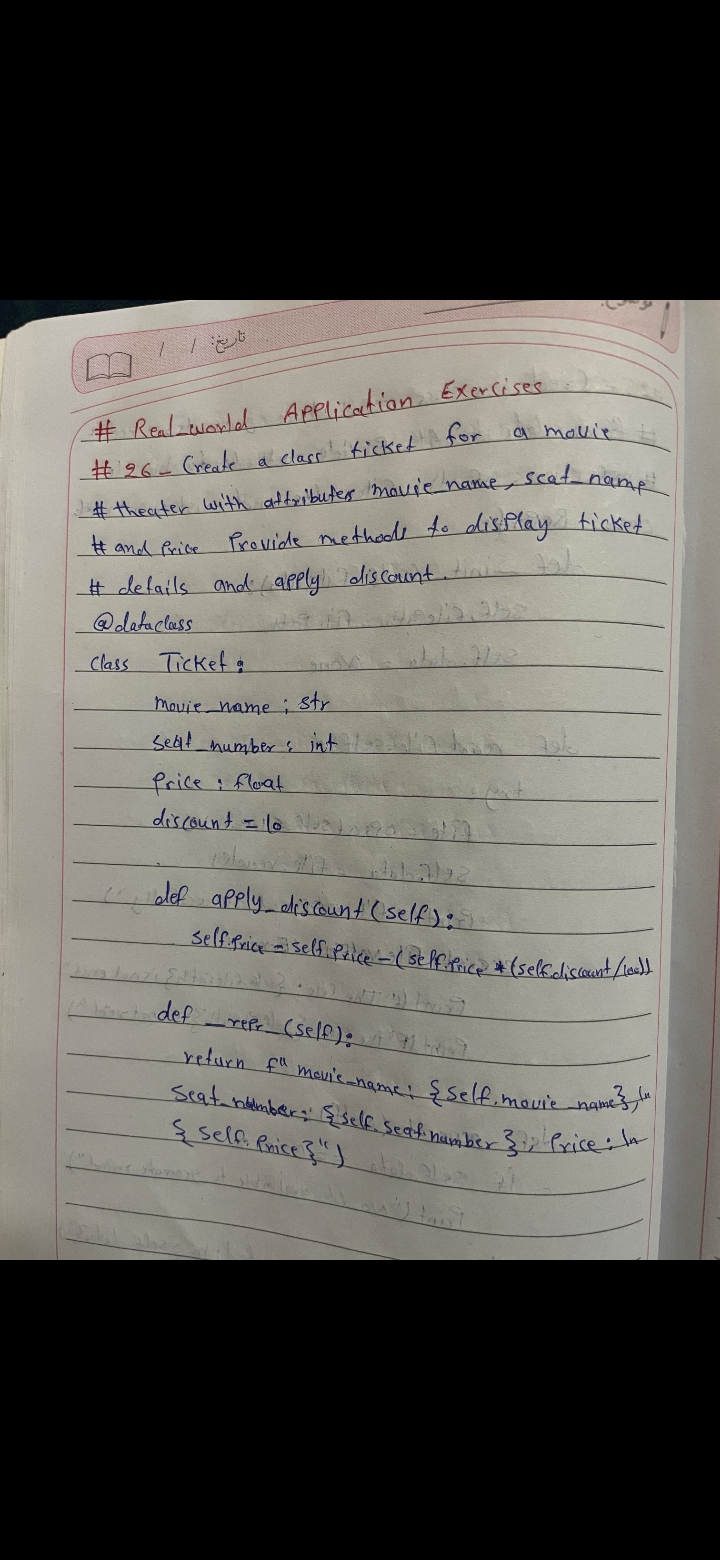 تاریخ: / /
# Real_world Application Exercises
# 26 - Create a class ticket for a movie
# theater with attributes movie_name, seat_name
# and Price Provide methods to display ticket
# details and apply discount.
@dataclass
class Ticket:
movie_name : str
seat_number : int
Price : float
discount = 10
def apply_discount(self):
self.Price = self.Price - (self.Price * (self.discount/100))
def __repr__(self):
return f" movie_name: {self.movie_name}, \n
Seat_number: {self.seat_number}, Price: \n
{self.Price}")